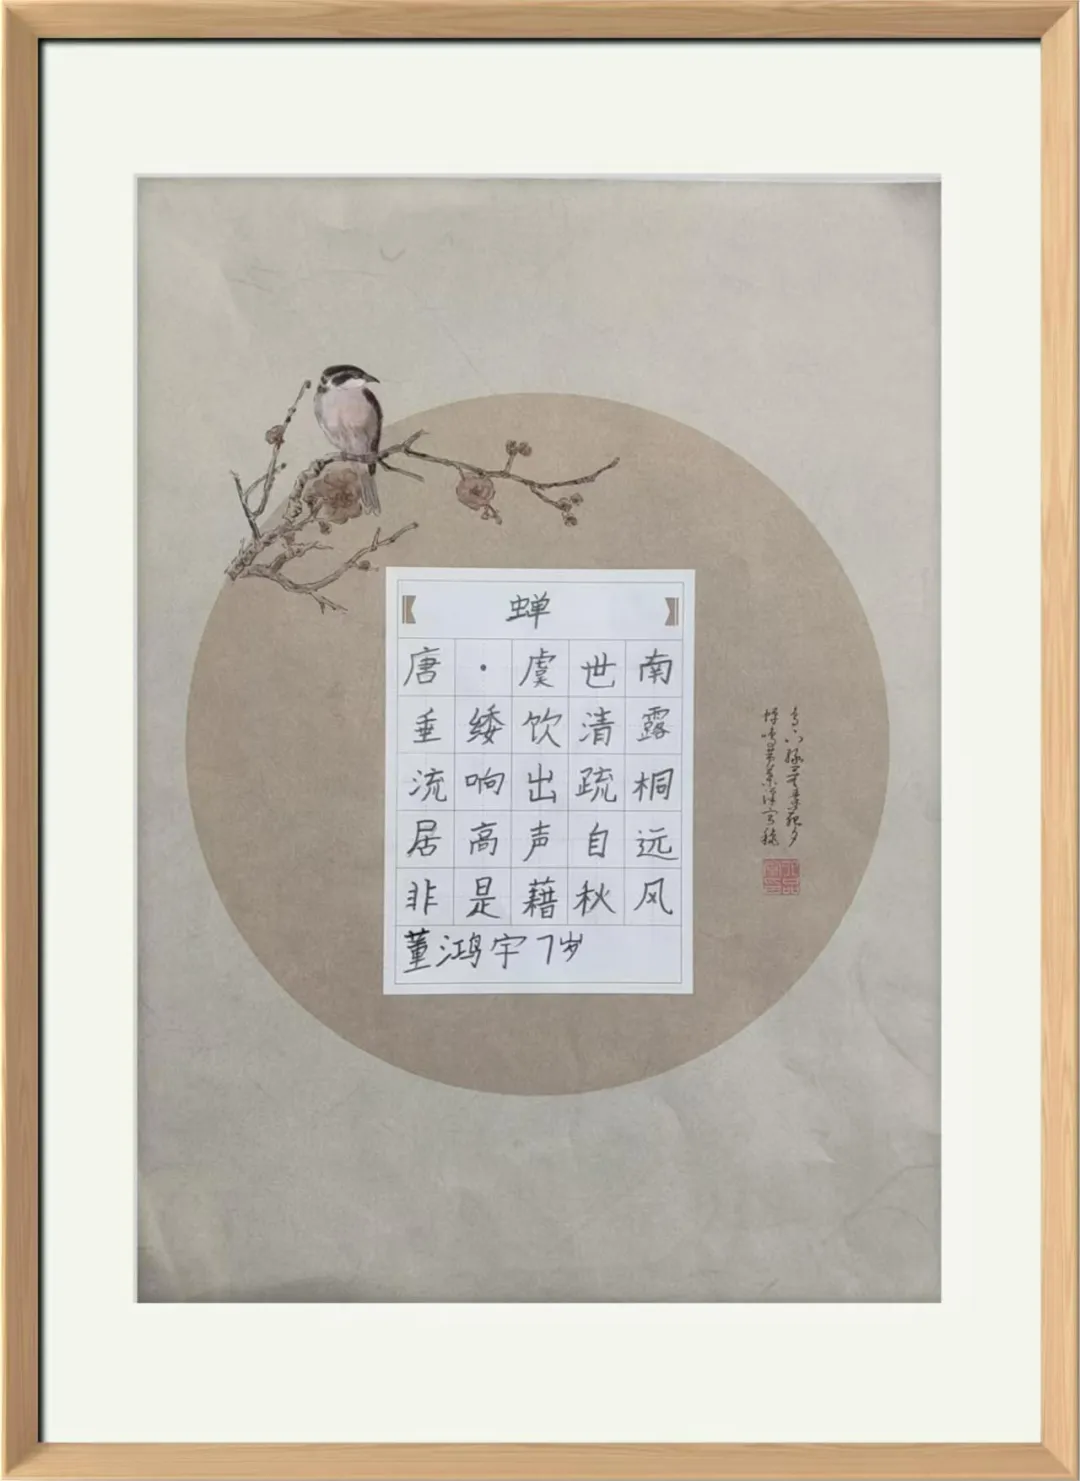 蝉
唐·虞世南
垂緌饮清露
流响出疏桐
居高声自远
非是藉秋风
董鸿宇7岁